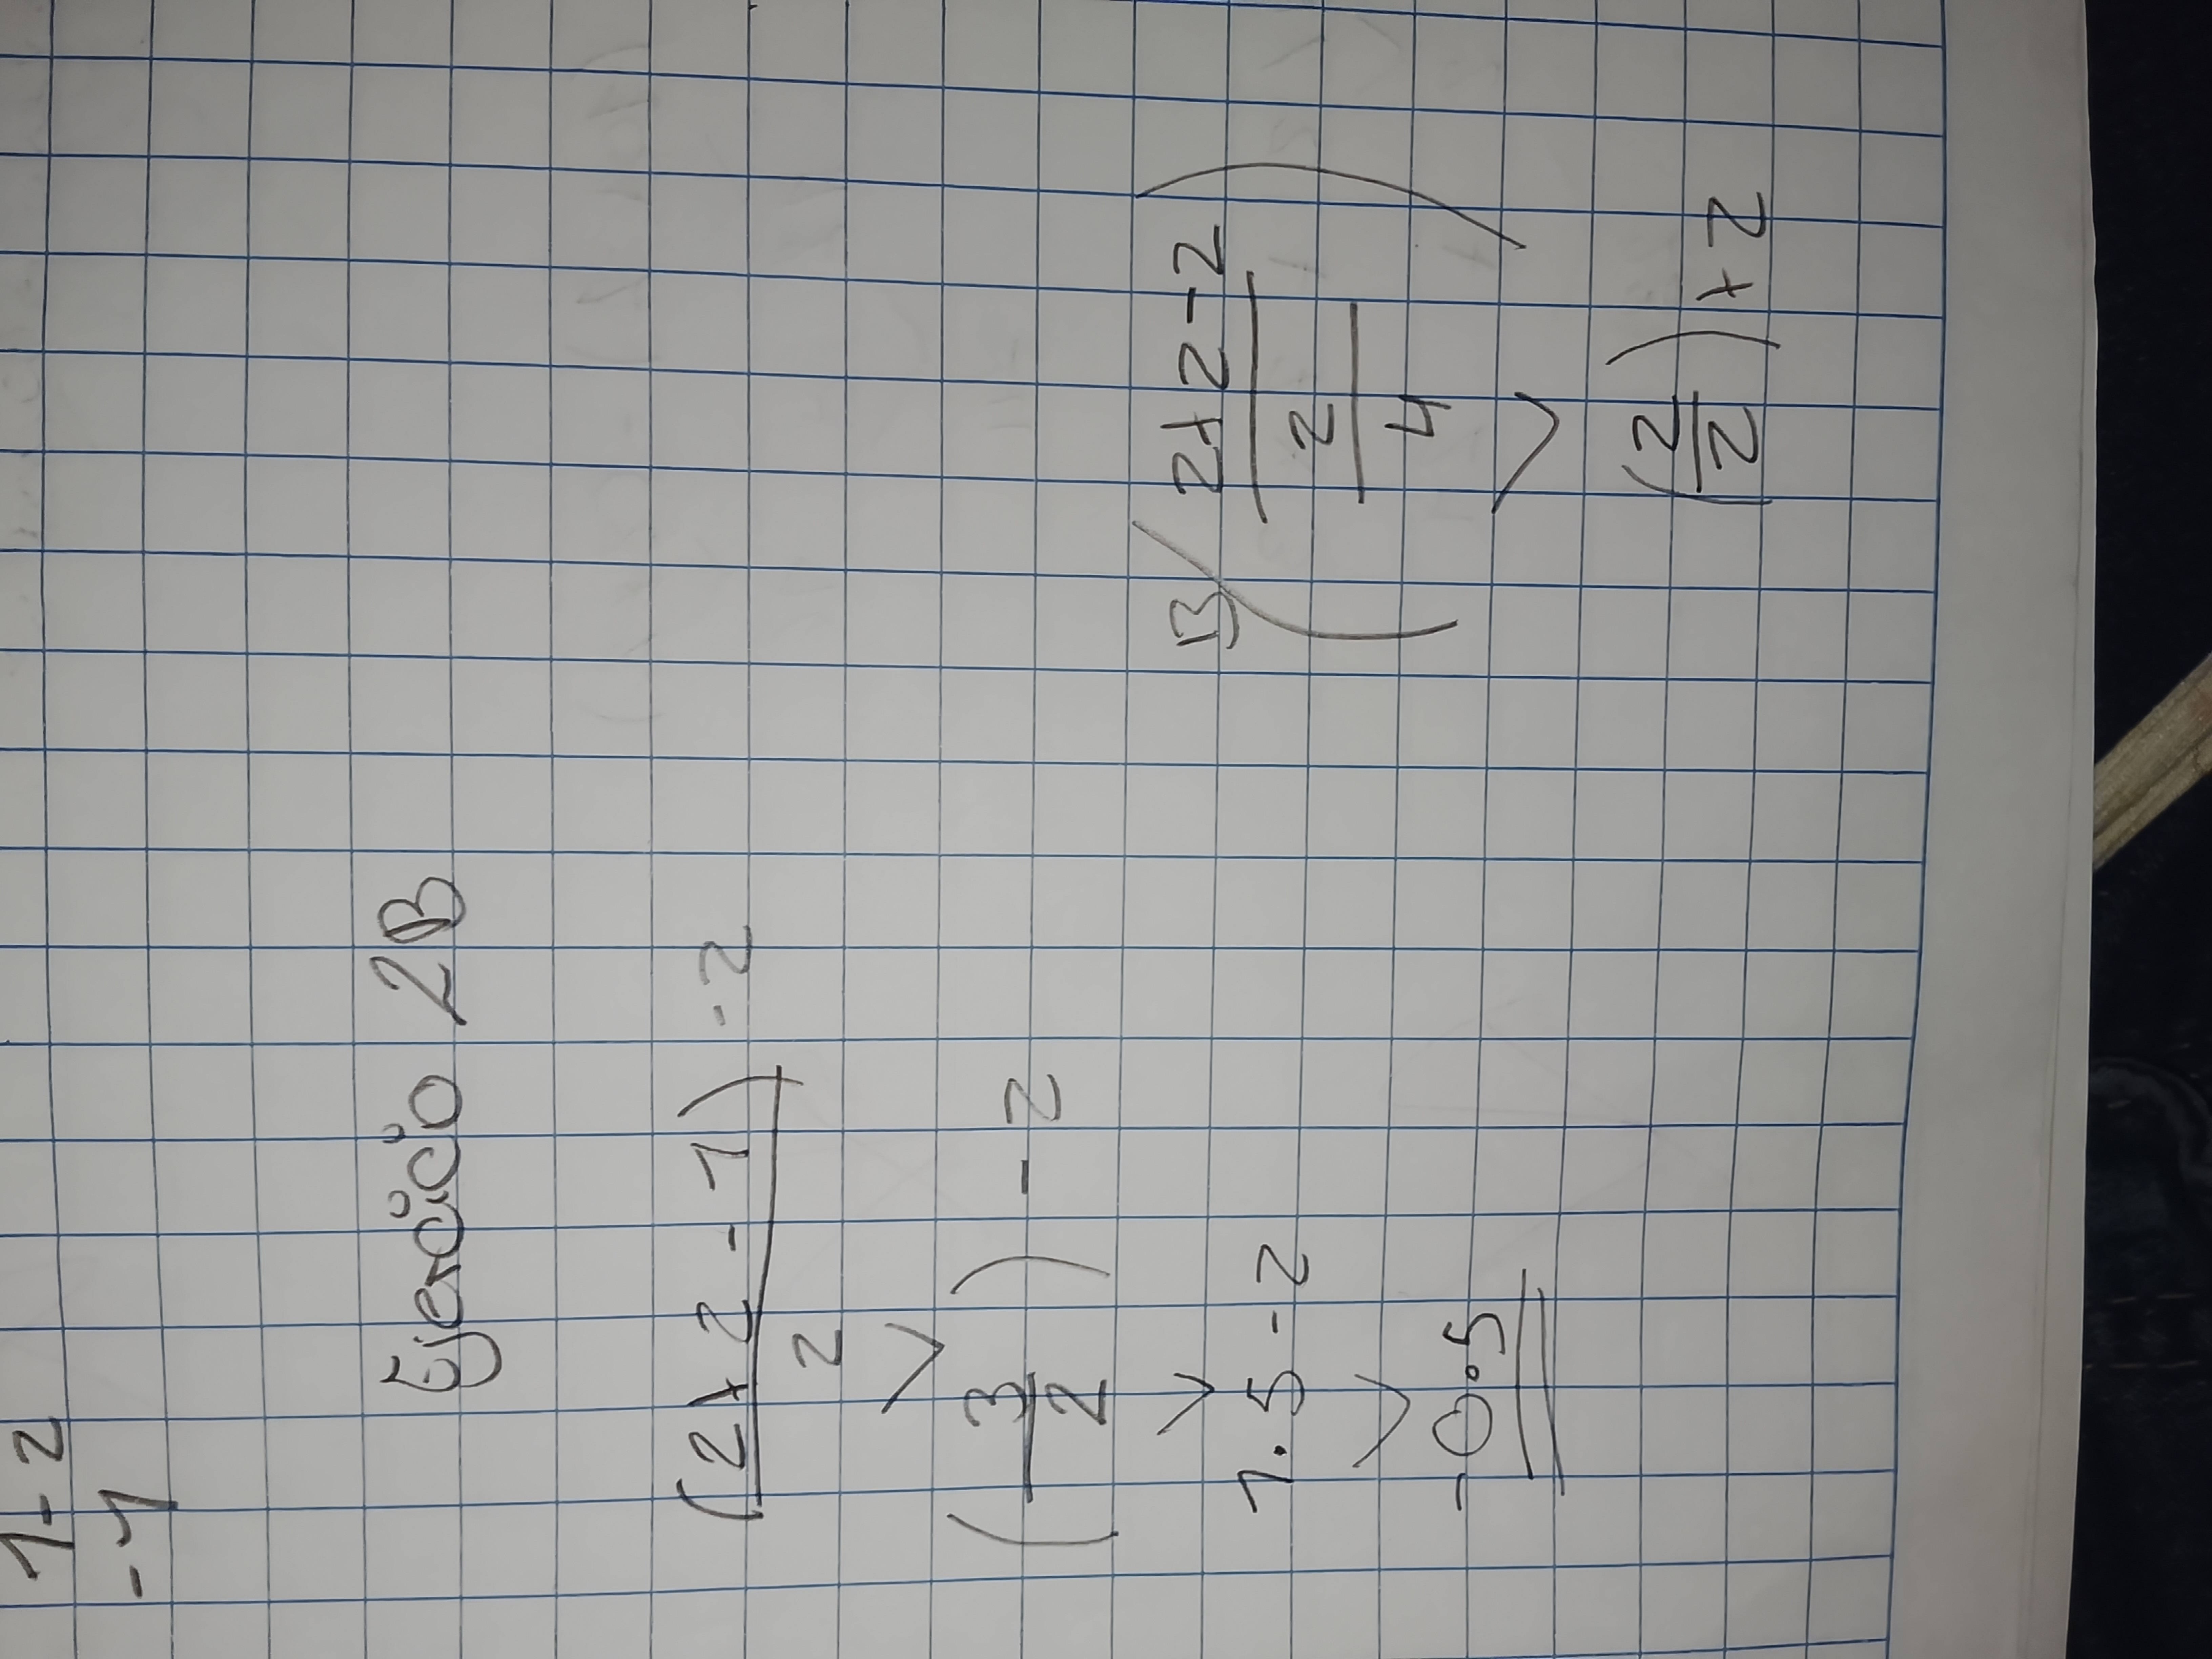 1-2
-1
Ejercicio 2B
(2+2-1) -2
2
(3/2) - 2
1.5 - 2
-0.5
B) (2+2-2
2
4)
(2/2) + 2